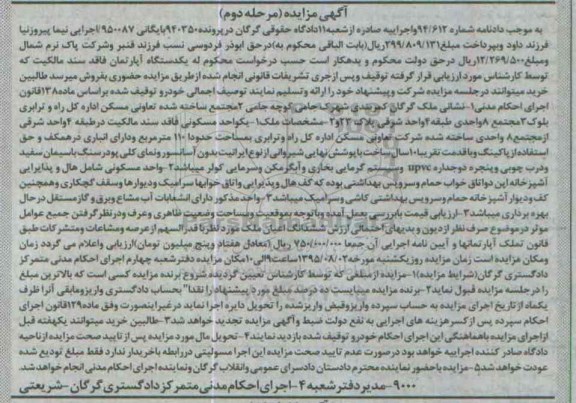 آگهی مزایده (مرحله دوم)
به موجب دادنامه شماره ۹۴/۶۱۲ واجراییه صادره ازشعبه۱۱دادگاه حقوقی گرگان درپرونده۹۴۰۳۵۰بایگانی ۹۵۰۰۸۷اجرایی نیما پیروزنیا
فرزند داود وپرداخت مبلغ۲۹۹/۸۰۹/۱۳۱ریال(بابت الباقی محکوم به)درحق ابوذر فردوسی نسب فرزند قنبر وشرکت پاک نرم شمال
ومبلغ۱۲/۲۶۹/۵۰۰ریال درحق دولت محکوم و بدهکار است حسب درخواست محکوم له یکدستگاه آپارتمان فاقد سند مالکیت که
توسط کارشناس مورد ارزیابی قرار گرفته توقیف وپس ازجری تشریفات قانونی انجام شده ازطریق مزایده حضوری بفروش میرسد طالبین
خرید میتوانند درجلسه مزایده شرکت وپیشنهاد خود را ارائه وتسلیم نمایند توصیف اجمالی خودرو توقیف شده براساس ماده۱۳۸قانون
اجرای احکام مدنی۱-نشانی ملک گرگان کمربندی شهرک امام کوچه جامی ۲مجتمع ساخته شده تعاونی مسکن اداره کل راه و ترابری
بلوک۳مجتمع ۸واحدی طبقه۴واحد شرقی پلاک ۲۳و۲-مشخصات ملک۱- یکواحد مسکونی فاقد سند مالکیت درطبقه ۴واحد شرقی
ازمجتمع۸ واحدی ساخته شده شرکت تعاونی مسکن اداره کل راه وترابری بمساحت حدودا ۱۱۰ مترمربع ودارای انباری درهمکف و حق
استفاده ازپاکینگ وباقدمت تقریبا۱۰سال ساخت باپوشش نهایی شیروانی ازنوع ایرانیت بدون آسانسور ونمای کلی پودرسنگ باسیمان سفید
ودرب چوبی وپنجره دوجداره upvc وسیستم گرمایی بخاری وآبگرمکن وسرمایی کولر میباشد۲-واحد مسکونی شامل هال و پذیرایی
آشپزخانه اپن دواتاق خواب حمام وسرویس بهداشتی بوده که کف هال وپذیرایی واتاق خوابها سرامیک ودیوارها وسقف گچکاری وهمچنین
کف ودیوار آشپزخانه حمام وسرویس بهداشتی کاشی وسرامیک میباشد۳-واحد مذکور دارای انشعابات آب مشاع وبرق و گاز مستقل درحال
بهره برداری میباشد۳-ارزیابی قیمت بابررسی بعمل آمده وباتوجه به موقعیت ومساحت وضعیت ظاهری وعرف ودرنظر گرفتن جمیع عوامل
موثر در موضوع صرف نظر ازدیون وبدیهای احتمالی ارزش ششدانگ اعیان ملک مورد نظر با قدرالسهم ازعرصه ومشاعات ومشترکات طبق
قانون تملک آپارتمانها و آیین نامه اجرایی آن جمعا ۷۵۰/۰۰۰/۰۰۰ ریال (معادل هفتاد وپنج میلیون تومان)ارزیابی واعلام می گردد زمان
ومکان مزایده است زمان مزایده روزیکشنبه مورخه۱۳۹۵/۰۸/۰۲ساعت۹الی۱۰مکان مزایده دفترشعبه چهارم اجرای احکام مدنی متمرکز
دادگستری گرگان(شرایط مزایده)۱-مزایده ازمبلغی که توسط کارشناس تعیین گردیده شروع برنده مزایده کسی است که بالاترین مبلغ
را درجلسه مزایده قبول نماید۲-برنده مزایده میبایست ده درصد مبلغ مورد پیشنهاد را نقدا" بحساب دادگستری واریزومابقی آنرا ظرف
یکماه ازتاریخ اجرای مزایده به حساب سپرده واریزوقبض واریزشده را تحویل دایره اجرا نماید درغیراینصورت وفق ماده۱۲۹قانون اجرای
احکام سپرده پس از کسر هزینه های اجرایی به نفع دولت ضبط و آگهی مزایده تجدید خواهد شد۳-طالبین خرید میتوانند یکهفته قبل
ازاجرای مزایده باهماهنگی این اجرای احکام خودرو توقیف شده بازدید نمایند۴-تحویل مال مورد مزایده پس از تایید صحت مزایده ازناحیه
دادگاه صادر کننده اجراییه خواهد بود درصورت عدم تایید صحت مزایده این اجرا مسولیتی دررابطه باخریدار ندارد فقط مبلغ تودیع شده
عودت خواهد شد۵-مزایده باحضور نماینده محترم دادسرای عمومی وانقلاب گرگان ونماینده اجرای احکام مدنی انجام خواهد شد.
۹۰۰۰-مدیردفترشعبه۴-اجرای احکام مدنی متمرکز دادگستری گرگان-شریعتی